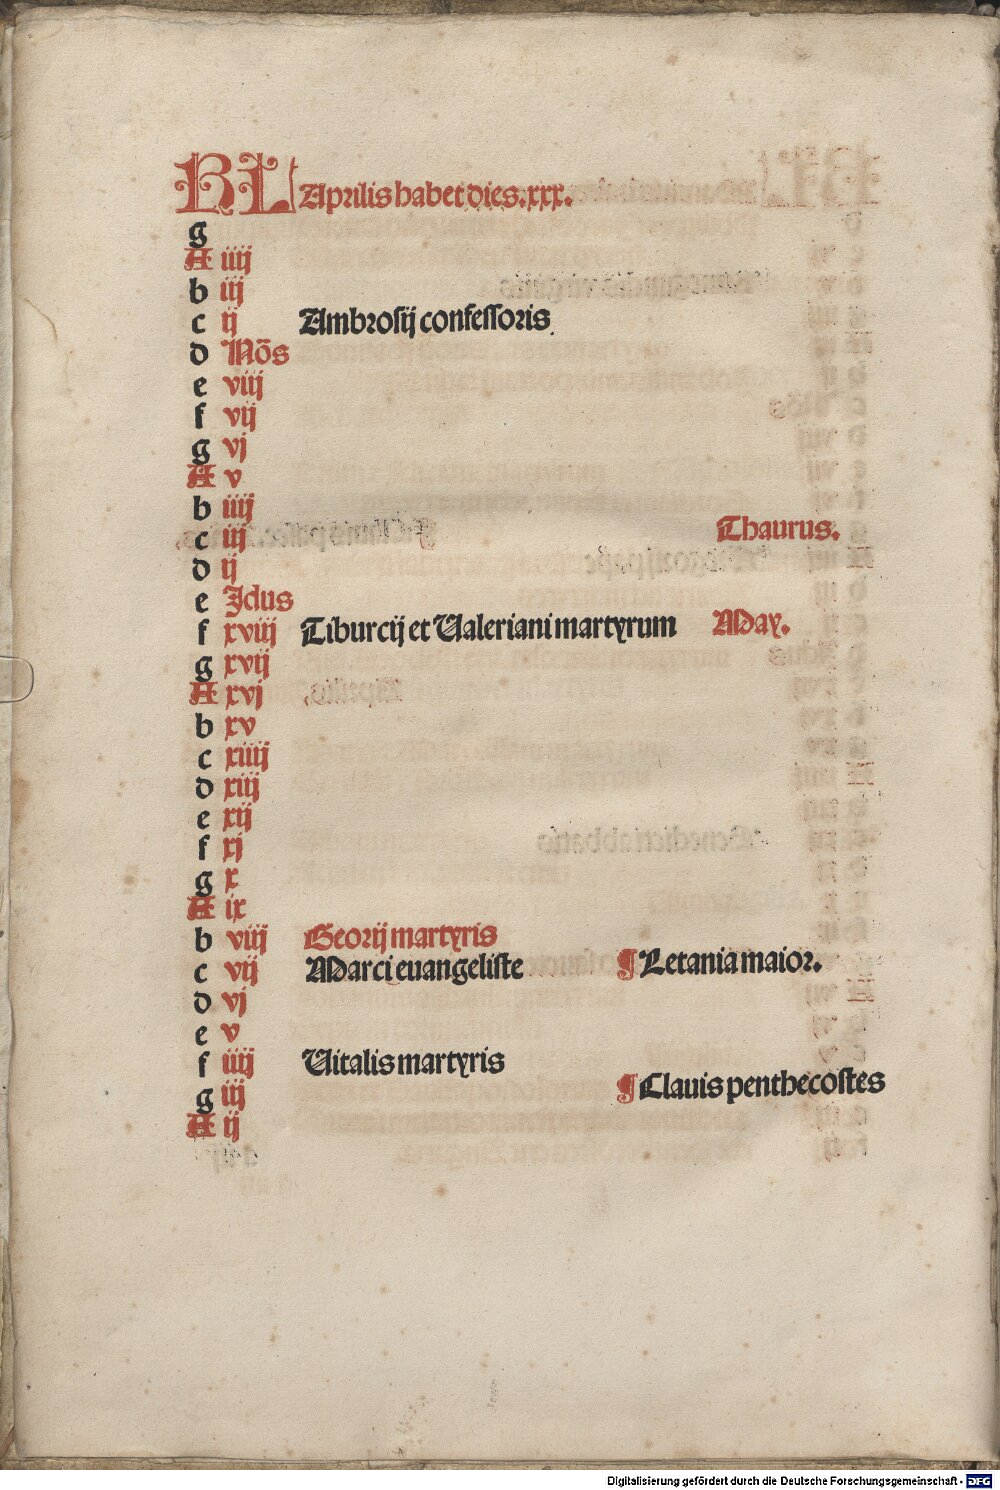 KL Aprilis habet dies.xxx.
g
A iiij
b iij
c ij Ambrosij confessoris
d Nōs
e viij
f vij
g vj
A v
b iiij
c iij Thaurus.
d ij
e Jdus
f xviij Tiburcij et Ualeriani martyrum May.
g xvij
A xvj
b xv
c xiiij
d xiij
e xij
f xj
g x
A ix
b viij Georij martyris
c vij Marci euangeliste ¶ Letania maior.
d vj
e v
f iiij Uitalis martyris
g iij ¶ Clauis penthecostes
A ij
Digitalisierung gefördert durch die Deutsche Forschungsgemeinschaft - DFG